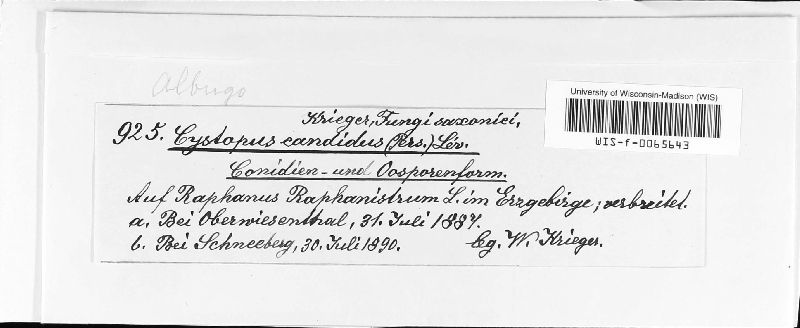 Albugo
University of Wisconsin-Madison (WIS)
WIS-f-0065643
Krieger, Fungi saxonici,
925. Cystopus candidus (Pers.) Lév.
Conidien- und Oosporenform.
Auf Raphanus Raphanistrum L. im Erzgebirge; verbreitet.
a. Bei Oberwiesenthal, 31. Juli 1887.
b. Bei Schneeberg, 30. Juli 1890. lg. W. Krieger.